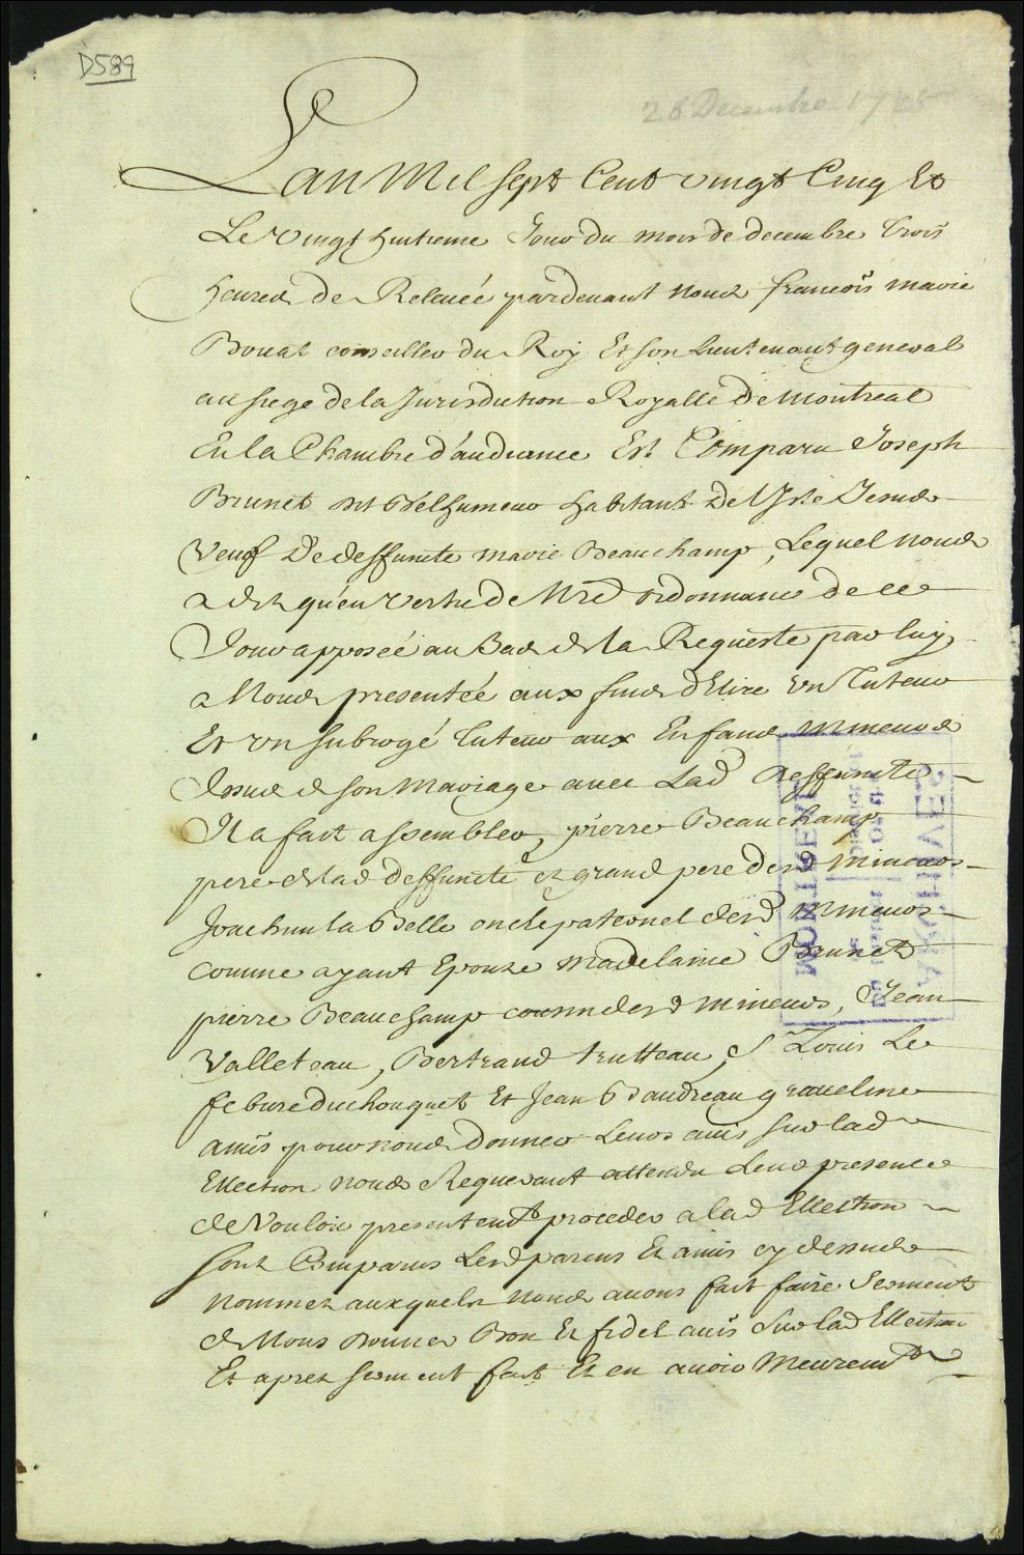 D589
28 Decembre 1725
Lan Mil Sept Cent vingt Cinq Et
Le Vingt huitieme Jour du mois de decembre trois
heures de Relevéé pardevant nous francois marie
Bouat conseiller du Roy Et son lieutenant general
au siege de la Jurisdiction Royalle De Montreal
En la Chambre d'audiance Est Comparu Joseph
Brunet dit Bélhumeur habitant De l'Isle Jesus
Veuf De deffuncte marie Beauchamp, Lequel nous
a dit qu'en vertu de Nre ordonnance de ce
Jour apposéé au Bas de la Requeste par luy
a Nous presentéé aux fins d'Elire un Tuteur
Et un subrogé tuteur aux Enfans mineurs
Issus de son Mariage avec Lad deffuncte
Il a fait assembler, pierre Beauchamp
pere de lad deffuncte et grand pere desd mineurs
Joachim la Belle oncle paternel desd mineurs
comme ayant Epouse Madelaine Brunet
pierre Beauchamp cousin desd mineurs, Jean
Valleteau, Bertrand trutteau, Sr Louis Le
febure duchouquet Et Jean Baudreau graveline
amis pour nous donner Leurs avis sur lad
Ellection nous Requerant attendu Leur presence
de Vouloir presentemt proceder a lad Ellection
Sont Comparus Lesd parens Et amis cy dessus
nommez auxquels nous avons fait faire Serment
de Nous donner Bon Et fidel avis Sur lad Ellection
Et apres serment fait Et en avoir Meuremt
ARCHIVES
MONTREAL